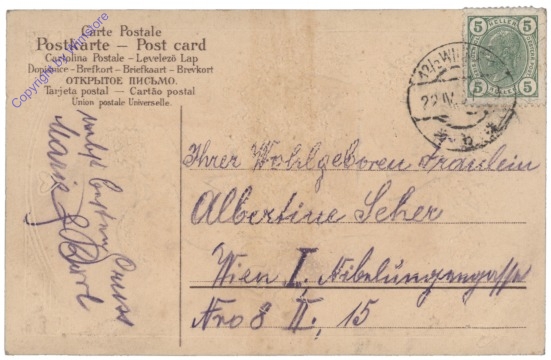 Carte Postale
Postkarte — Post card
Cartolina Postale - Levelező Lap
Dopisnice - Brefkort - Briefkaart - Brevkort
ОТКРЫТОЕ ПИСЬМО.
Tarjeta postal - Cartão postal
Union postale Universelle.
Copyright by WinStore
5 HELLER 5
5 5
WIEN
22 IV
Ihrer Wohlgeboren Fräulein
Albertine Scher
Wien I. Nibelungengasse
Nro 8 II, 15
Gruss
Marie